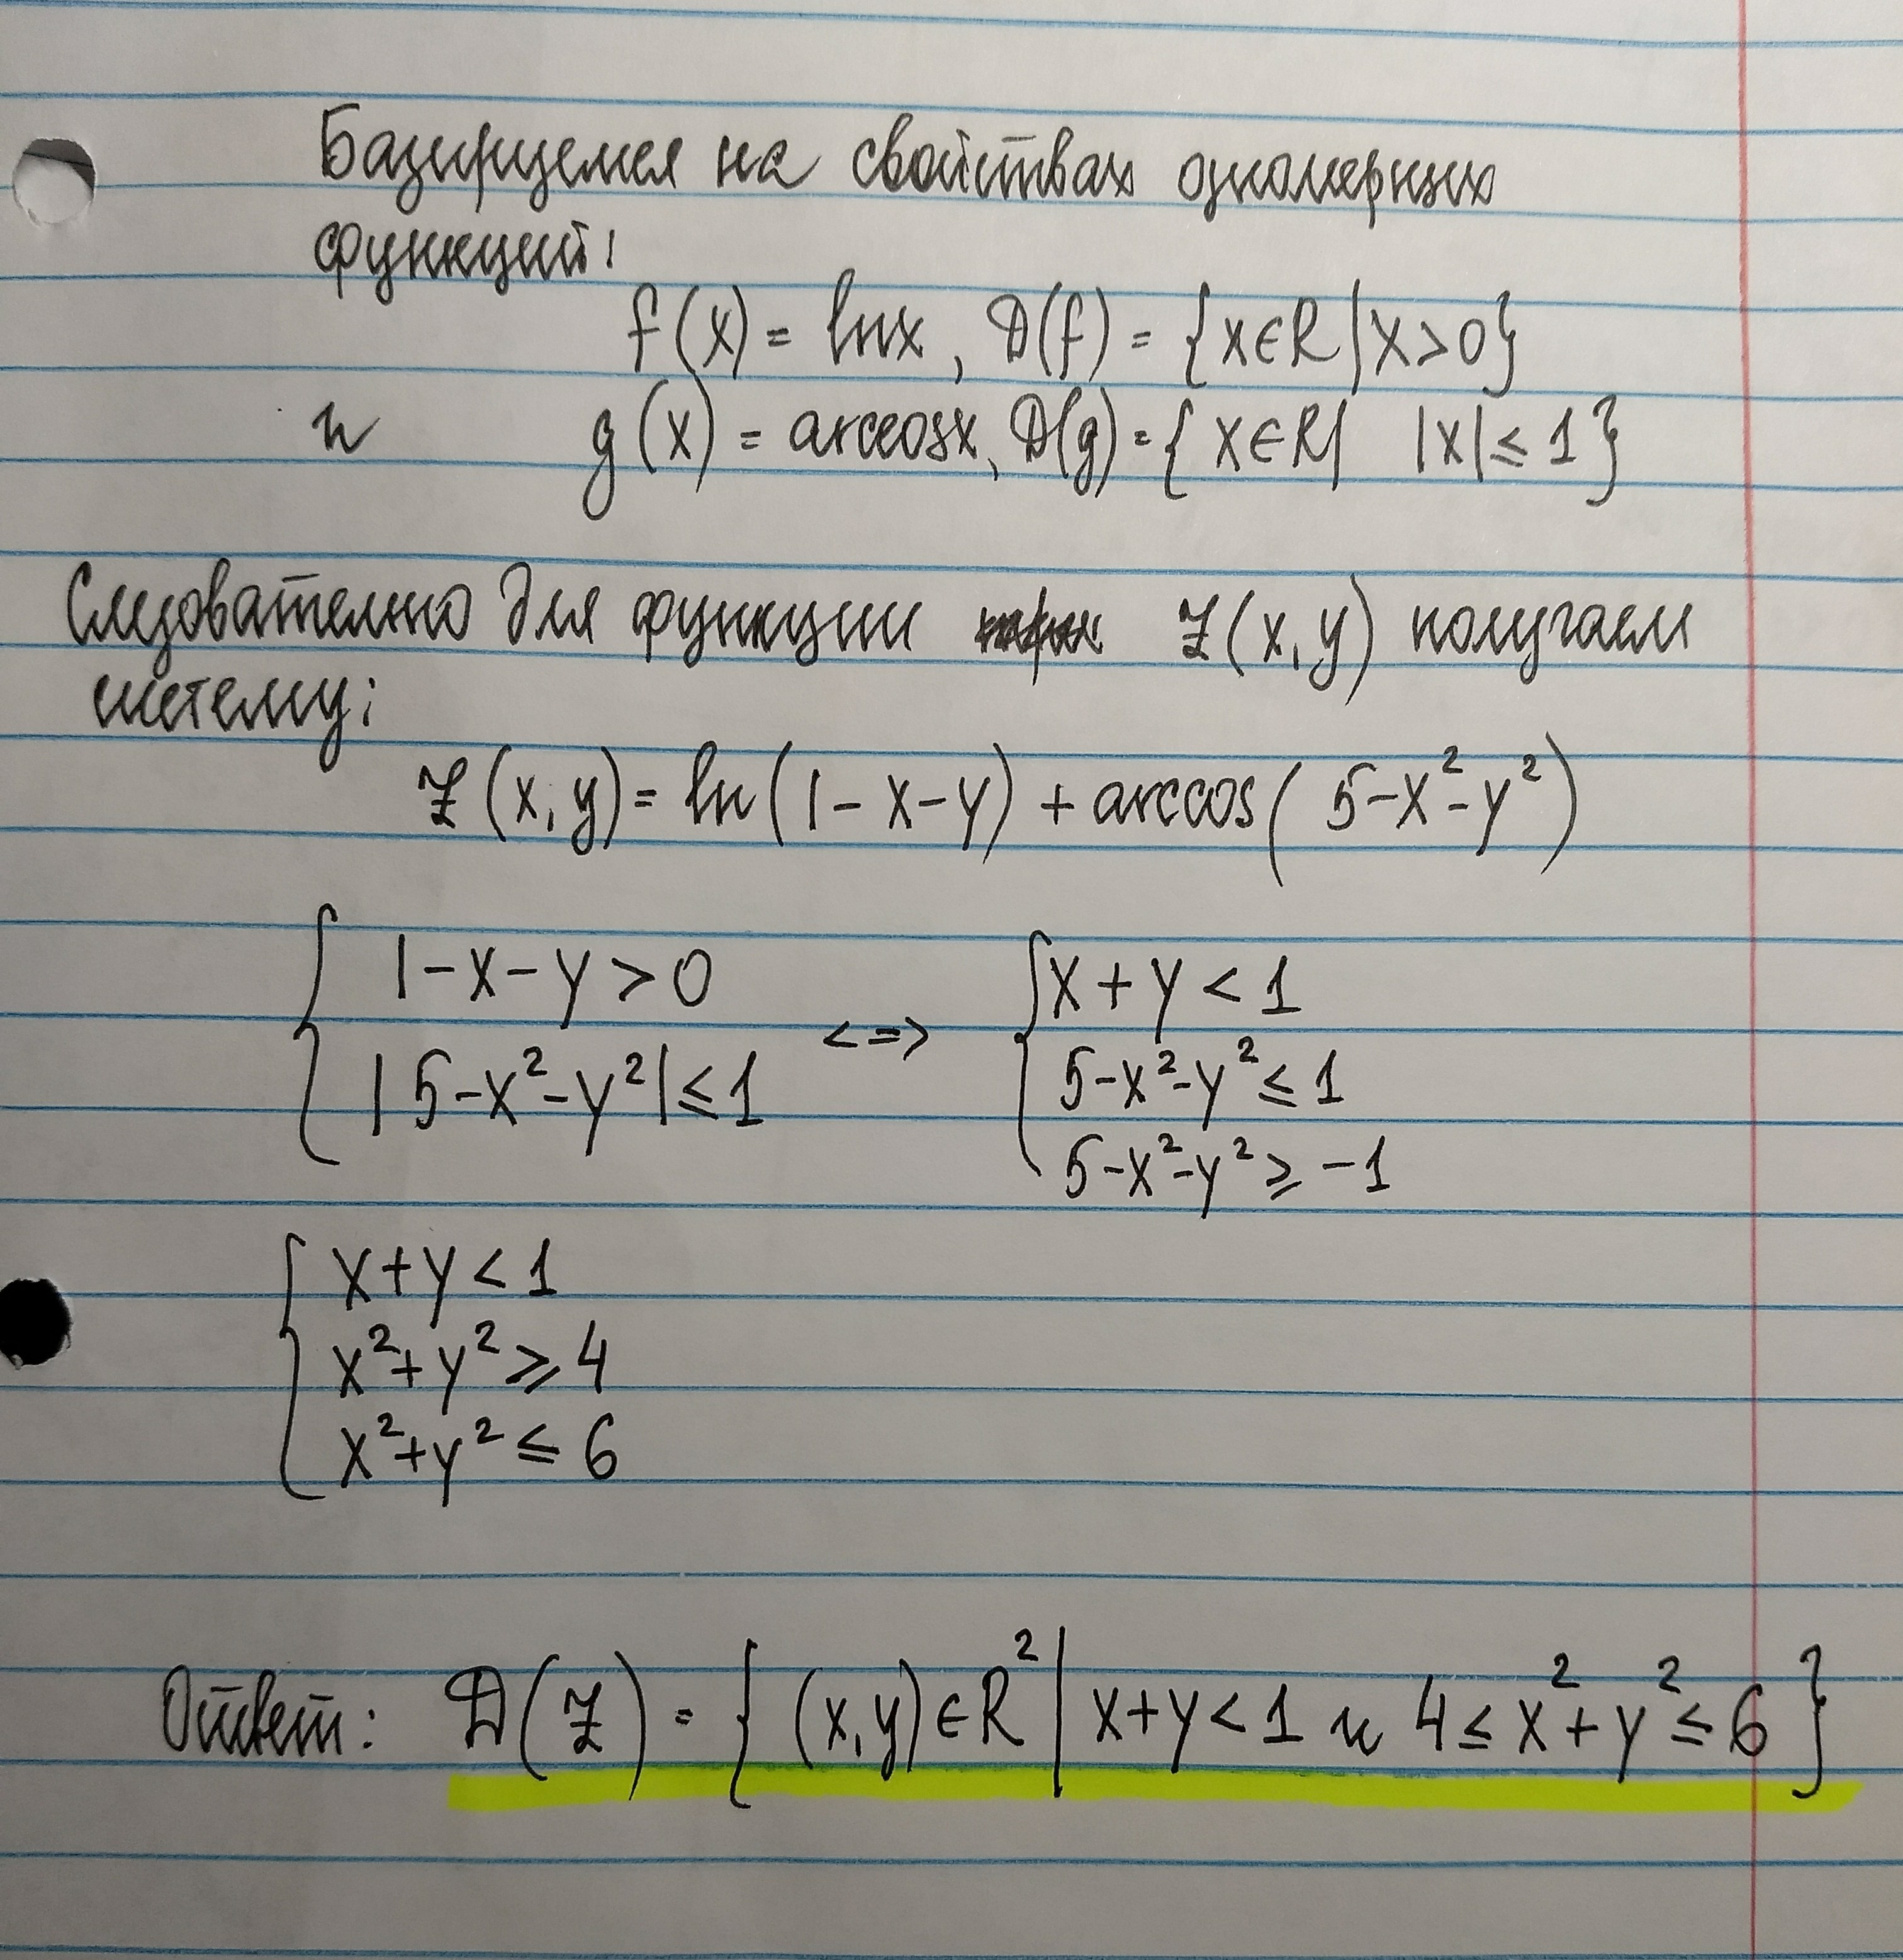 Базируемся на свойствах одномерных
функций:
f(x) = lnx, D(f) = {x∈R | x>0}
и g(x) = arccosx, D(g) = {x∈R | |x| ≤ 1}
Следователно для функции z(x,y) получаем
систему:
z(x,y) = ln(1-x-y) + arccos(5-x²-y²)
{ 1-x-y>0 <=> { x+y<1
|5-x²-y²| ≤ 1 5-x²-y² ≤ 1
5-x²-y² ≥ -1
{ x+y<1
x²+y² ≥ 4
x²+y² ≤ 6
Ответ: D(z) = { (x,y)∈R² | x+y<1 и 4 ≤ x²+y² ≤ 6 }